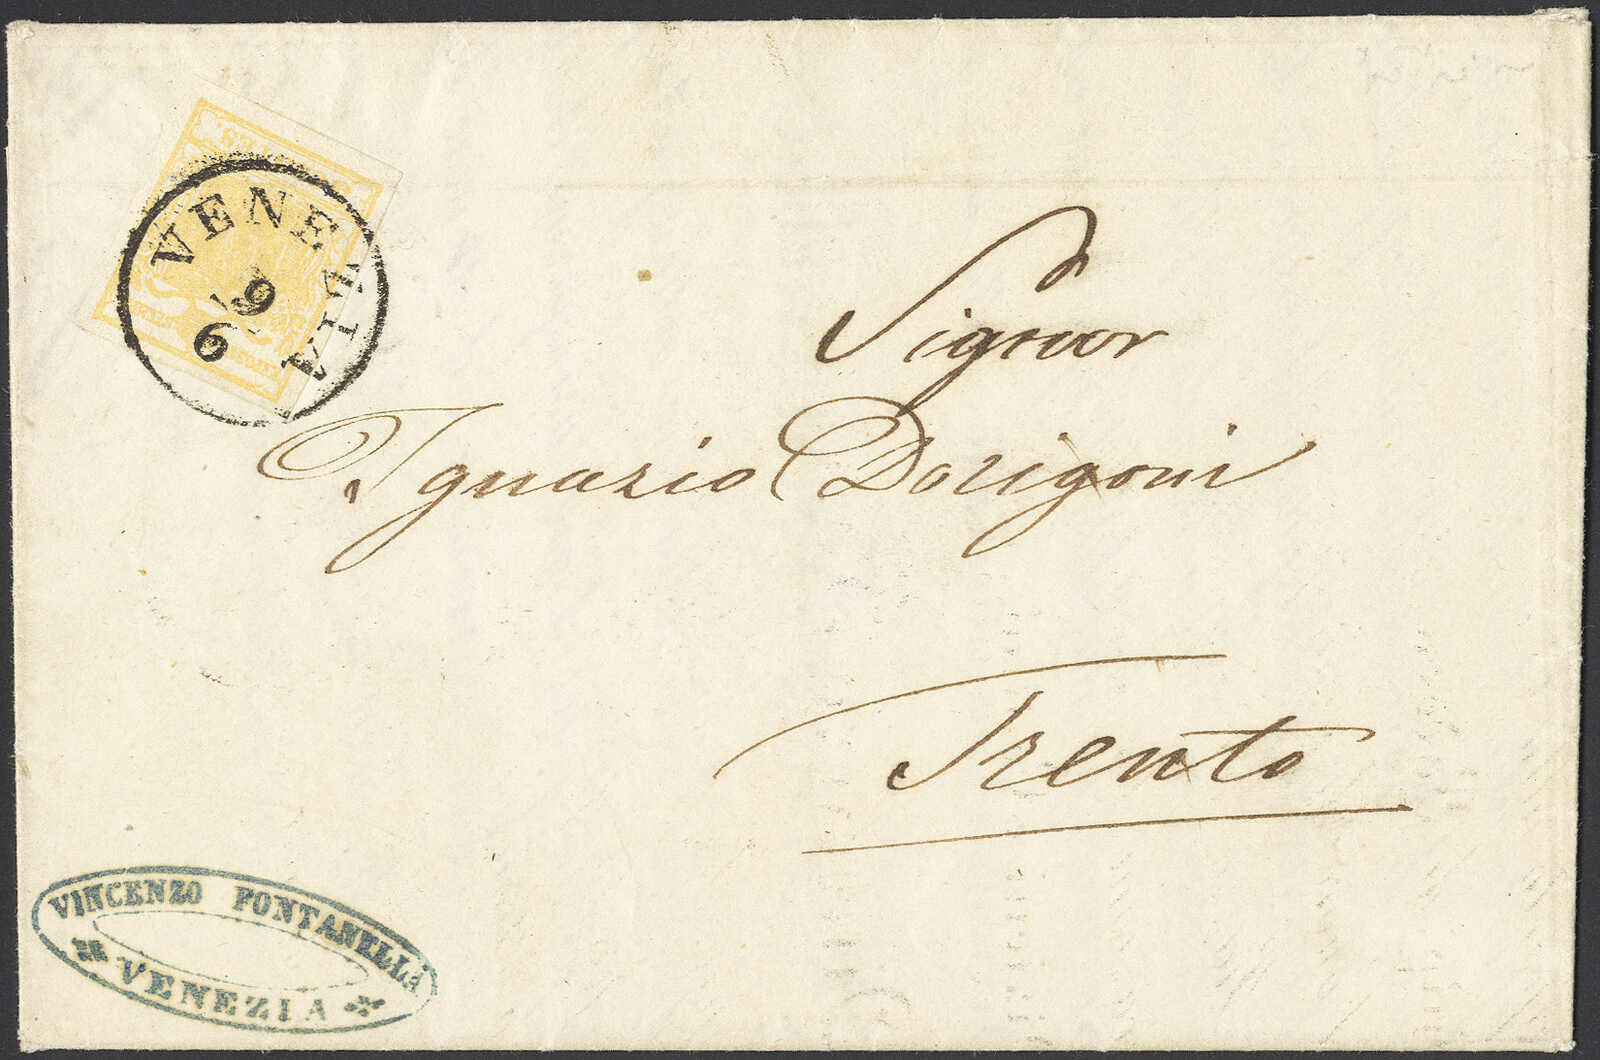 VENEZIA
19
6
Signor
Ignazio Dorigoni
Trento
VINCENZO FONTANELLA
VENEZIA